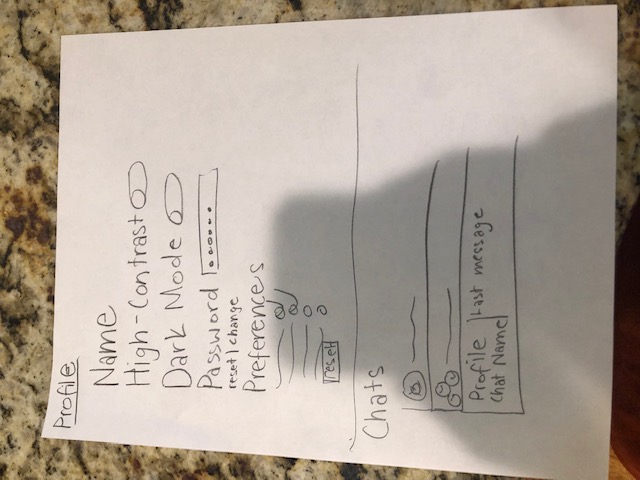 Profile
Name
High-Contrast
Dark Mode
Password
reset | change
Preferences
reset
Chats
Profile | Last message
Chat Name